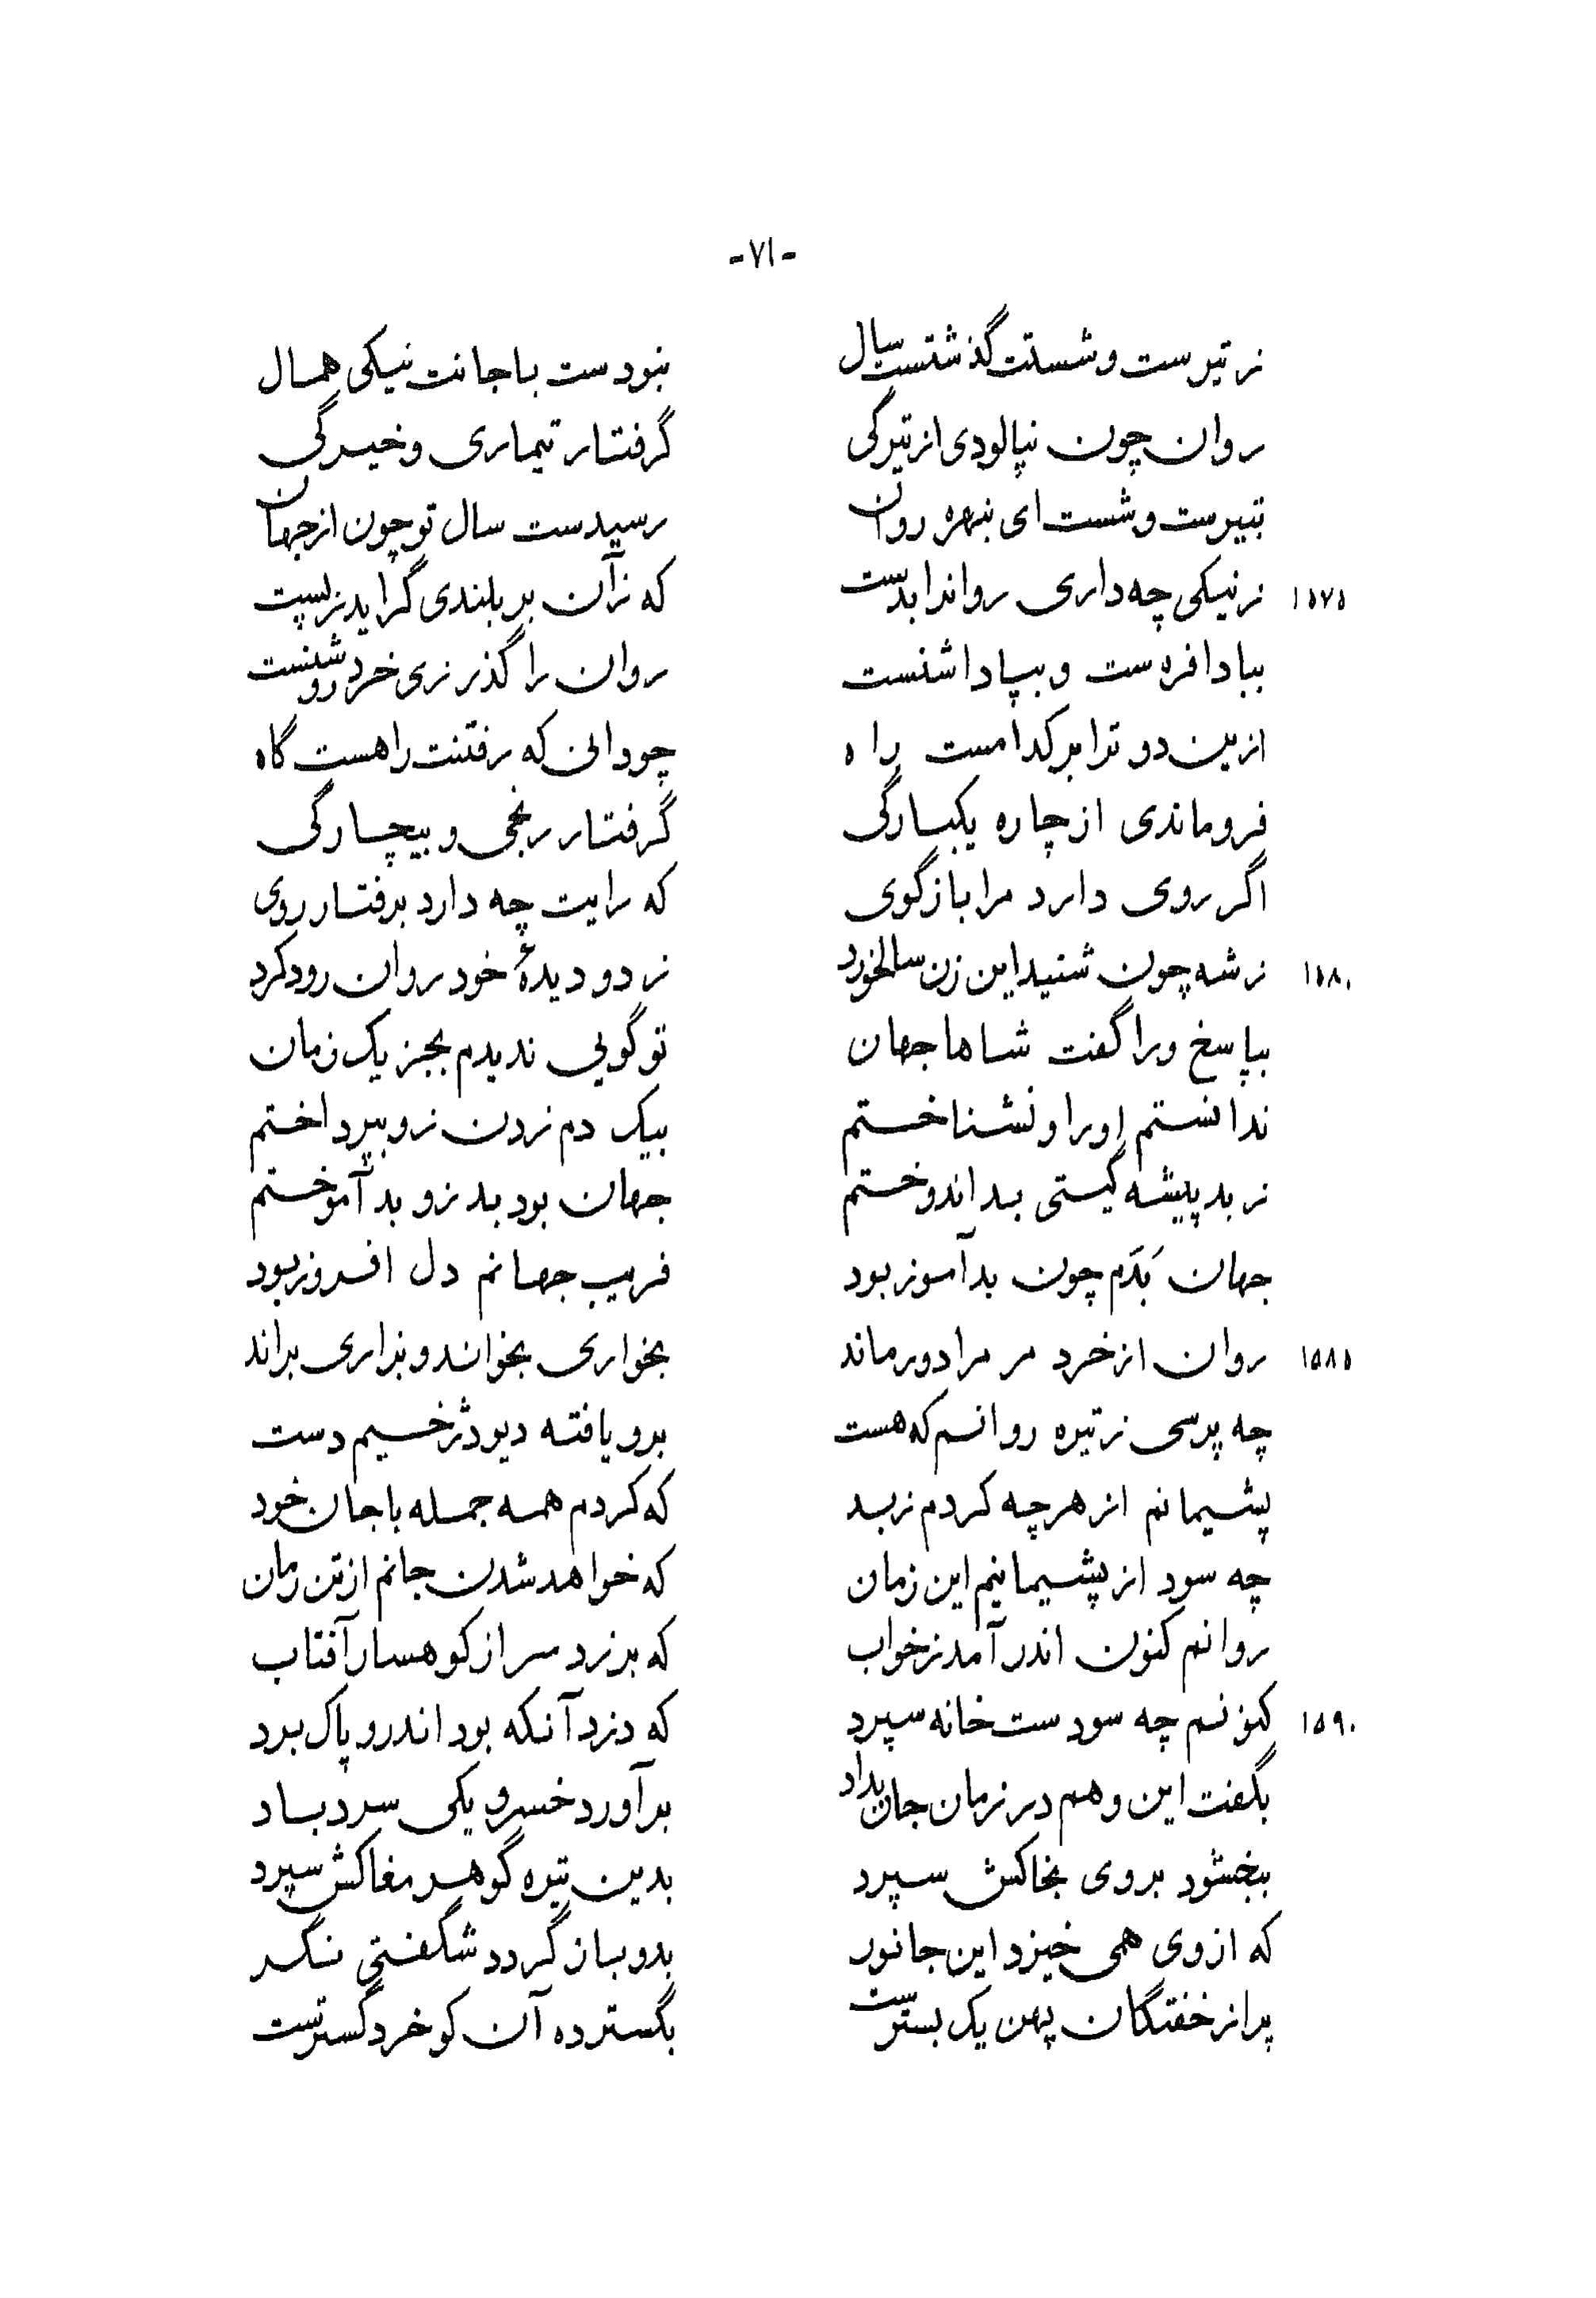 -٧١-
ز تیرست و شستت گذشتست سال نبودست با جانت نیکی همال
روان چون نپالودی از تیرگی گرفتار تیماری و خیرگی
بتیرست و شست ای نبهره روان رسیدست سال تو چون از جهان
١٥٧٥ ز نیکی چه داری روانرا بدست که زآن بر بلندی گراید ز پست
ببادافره ست و بپاداشنست روان را گذر زی خرد روشنست
ازین دو ترا بر کدامست راه چو دانی که رفتنت را هست گاه
فروماندی از چاره یکبارگی گرفتار رنجی و بیچارگی
اگر روی دارد مرا بازگوی که رایت چه دارد برفتار روی
١٥٨٠ ز شه چون شنید این زن سالخورد ز دو دیدهٔ خود روان رود کرد
بپاسخ ورا گفت شاها جهان تو گویی ندیدم بجز یک زمان
ندانستم او را و نشناختم بیک دم زدن زو بپرداختم
ز بد پیشه گیتی بد اندوختم جهان بود بد زو بد آموختم
جهان بَدَم چون بدآموز بود فریب جهانم دل افروز بود
١٥٨٥ روان از خرد مر مرا دور ماند بخواری بخواند و بزاری براند
چه پرسی ز تیره روانم که هست برو یافته دیو دژخیم دست
پشیمانم از هر چه کردم ز بد که کردم همه جمله با جان خود
چه سود از پشیمانیم این زمان که خواهد شدن جانم از تن زمان
روانم کنون اندر آمد ز خواب که برزد سر از کوهسار آفتاب
١٥٩٠ کنونم چه سودست خانه سپرد که دزد آنکه بود اندرو پاک برد
بگفت این و هم در زمان جان بداد برآورد خسرو یکی سرد باد
ببخشود بروی بخاکش سپرد بدین تیره گوهر مغاکش سپرد
که از وی همی خیزد این جانور بدو باز گردد شگفتی نگر
پر از خفتگان پهن یک بسترست بگسترده آن کو خرد گسترست